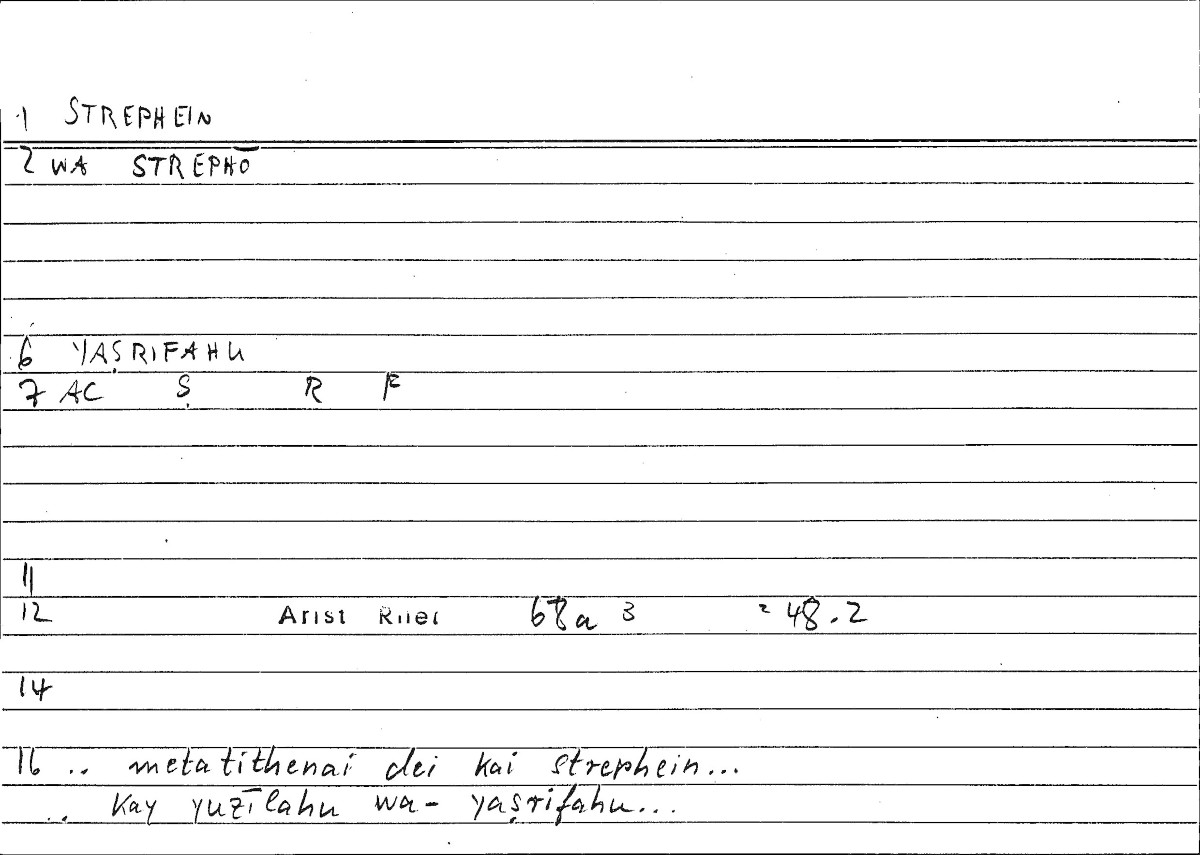 1 STREPHEIN
2 WA STREPHŌ
6 YAṢRIFAHU
7 AC Ṣ R F
11
12 Arist Rhet 68a 3 = 48.2
14
16 .. metatithenai dei kai strephein...
.. kay yuzīlahu wa- yaṣrifahu...